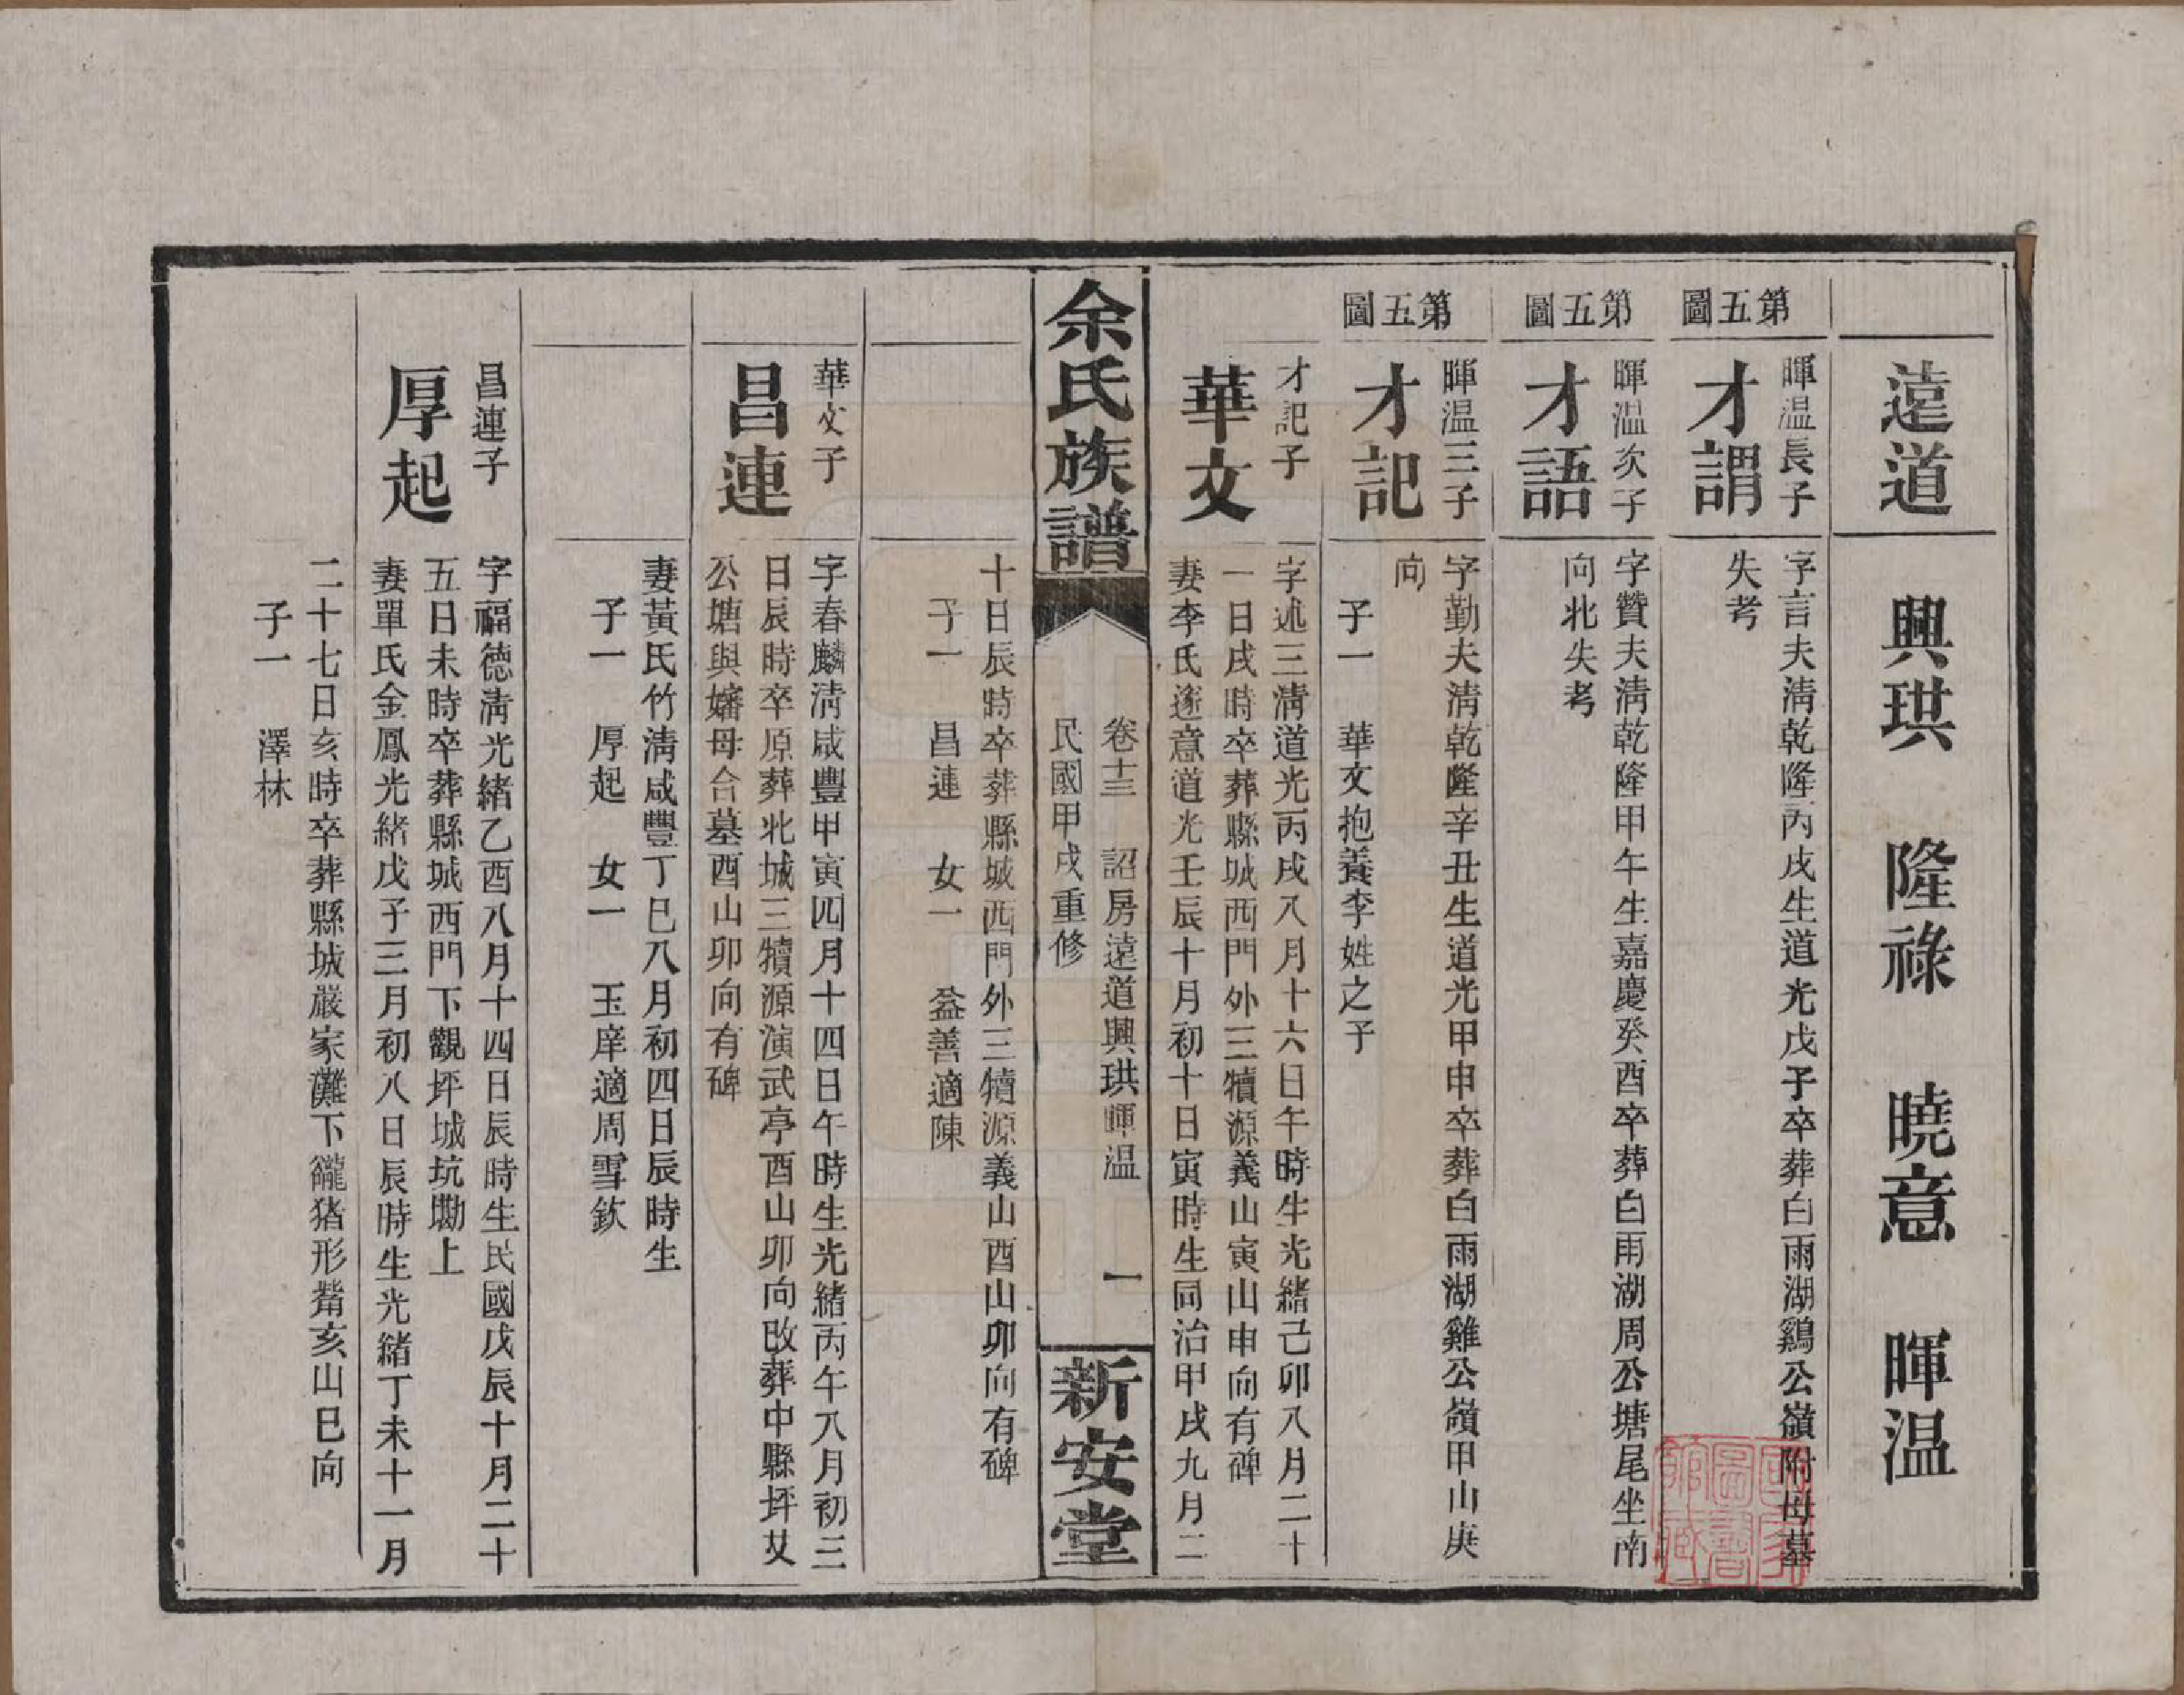 遠道 興珙 隆祿 曉意 暉温
第五圖
暉温長子
才謂
字言夫淸乾隆丙戌生道光戊子卒葬白雨湖鷄公嶺附母墓
失考
第五圖
暉温次子
才語
字贊夫淸乾隆甲午生嘉慶癸酉卒葬白雨湖周公塘尾坐南
向北失考
第五圖
暉温三子
才記
字勤夫淸乾隆辛丑生道光甲申卒葬白雨湖雞公嶺甲山庚
向
子一 華文抱養李姓之子
才記子
華文
字述三淸道光丙戌八月十六日午時生光緒己卯八月二十
一日戌時卒葬縣城西門外三犢源義山寅山申向有碑
妻李氏遂意道光壬辰十月初十日寅時生同治甲戌九月二
余氏族譜
卷十三 詔房遠道興珙暉温 一
民國甲戌重修
新安堂
十日辰時卒葬縣城西門外三犢源義山酉山卯向有碑
子一 昌連 女一 益善適陳
華文子
昌連
字春麟淸咸豐甲寅四月十四日午時生光緒丙午八月初三
日辰時卒原葬北城三犢源演武亭酉山卯向改葬中縣坪艾
公塘與嬸母合墓酉山卯向有碑
妻黃氏竹淸咸豐丁巳八月初四日辰時生
子一 厚起 女一 玉庠適周雪欽
昌連子
厚起
字福德淸光緒乙酉八月十四日辰時生民國戊辰十月二十
五日未時卒葬縣城西門下觀坪城坑墈上
妻單氏金鳳光緒戊子三月初八日辰時生光緒丁未十一月
二十七日亥時卒葬縣城嚴家難下籠猪形觜亥山巳向
子一 澤林
國家圖書館藏